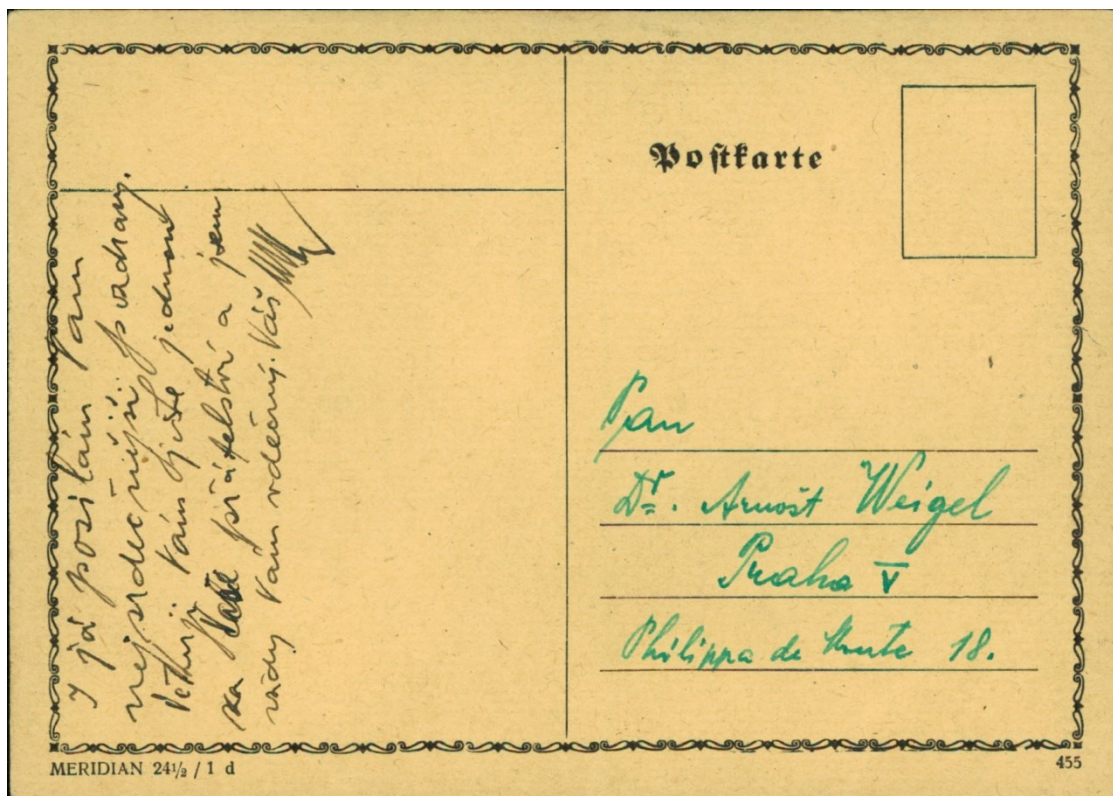 Postkarte
Y já posílám Vám
nejsrdečnější pozdravy.
Děkuji Vám ještě jednou
za Vaše přátelství a jsem
vždy Vám vděčný. Váš
Pan
Dr. Arnošt Weigel
Praha V
Philippa de Monte 18.
MERIDIAN 24½ / 1 d
455